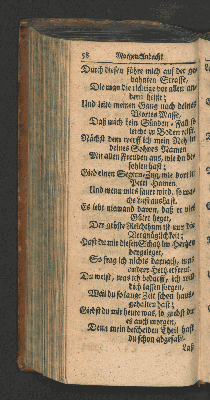 58 Morgen-Andacht
Durch diesen führe mich auf der ge-
bahnten Strasse,
Die man die richtige vor allen an-
dern heißt;
Und leite meinen Gang nach deines
Wortes Masse,
Daß mich kein Sünden-Fall so
leicht zu Boden reißt.
Nächst dem werff ich mein Netz in
deines Sohnes Namen
Mit allen Freuden aus, wie du be-
fohlen hast;
Gieb einen Segens-Zug, wie dort in
Petri Hamen,
Und wenn mirs sauer wird, so was
Es lebt niemand davon, daß er viel
Güter heget,
Der größte Reichthum ist nur das
Vergnüglichkeit;
Hast du mir diesen Schatz im Hertzen
beygeleget,
So frag ich nichts darnach, was
andere Hertz erfreut.
Du weißt, was ich bedarff, ich will
dich lassen sorgen,
Weil du so lange Zeit schon haus-
gehalten hast;
Giebst du mir heute was, so giebst du
es auch morgen,
Denn mein bescheiden Theil hast
du schon abgefaßt.
Laß